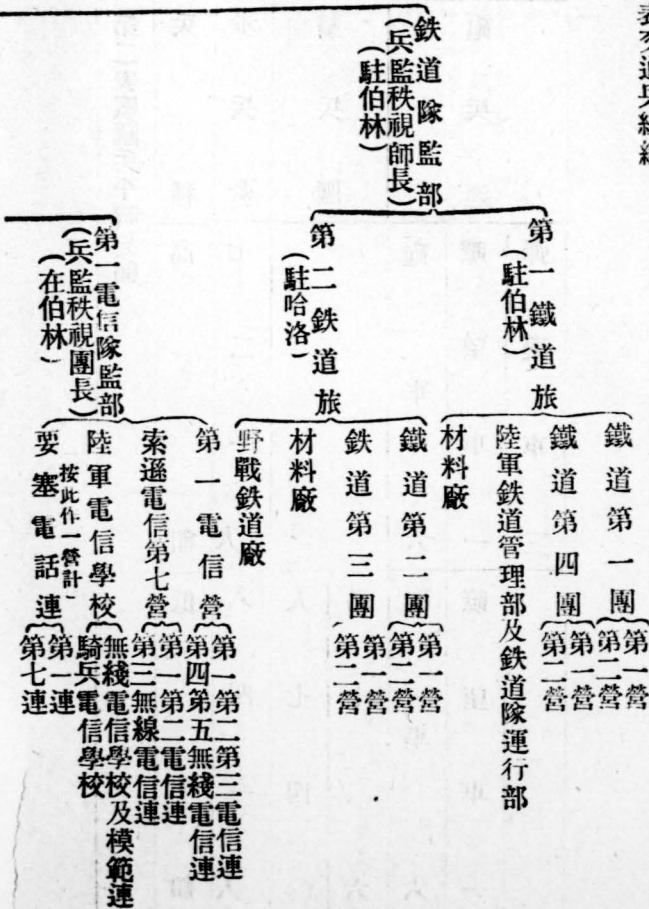 鉄道隊監部
(兵監秩視師長)
(駐伯林)
第一鐵道旅
(駐伯林)
鐵道第一團
第一營
第二營
鐵道第四團
第一營
第二營
陸軍鉄道管理部及鉄道隊運行部
材料廠
第二鉄道旅
(駐哈洛)
鐵道第二團
第一營
第二營
鉄道第三團
第一營
第二營
材料廠
野戰鉄道廠
第一電信隊監部
(兵監秩視團長)
(在伯林)
第一電信營
第一第二第三電信連
第四第五無綫電信連
索遜電信第七營
第一第二電信連
第三無線電信連
陸軍電信學校
按此作一營計
無綫電信學校及模範連
騎兵電信學校
要塞電話連
第一連
第七連